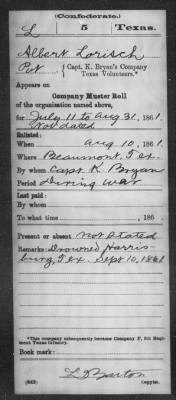 (Confederate.)
L 5 Texas.
Albert Lorisch
Pvt, Capt. K. Bryan's Company
Texas Volunteers.*
Appears on
Company Muster Roll
of the organization named above,
for July 11 to Aug 31, 1861.
Not dated
Enlisted:
When Aug 10, 1861.
Where Beaumont, Tex.
By whom Capt. K. Bryan
Period During War
Last paid:
By whom
To what time , 186 .
Present or absent Not Stated
Remarks: Drowned Harris-
burg, Tex. Sept 10, 1861
*This company subsequently became Company F, 5th Regi-
ment Texas Infantry.
Book mark:
(642) L D Barton
Copyist.